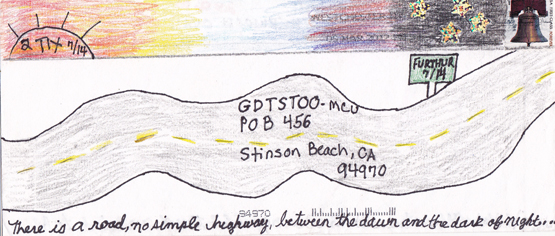 2 TIX 7/14
FURTHUR
7/14
GDTSTOO-MCU
POB 456
Stinson Beach, CA
94970
94970
There is a road, no simple highway, between the dawn and the dark of night...